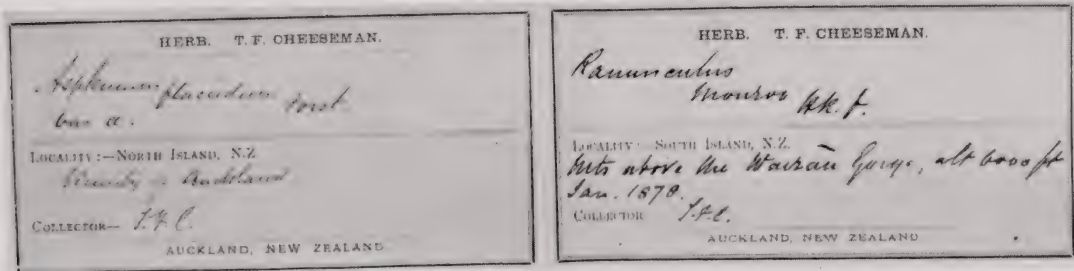 HERB. T. F. CHEESEMAN.
Asplenium flaccidum Forst
var a.
LOCALITY:—NORTH ISLAND, N.Z.
Vicinity of Auckland
COLLECTOR— T.F.C.
AUCKLAND, NEW ZEALAND
HERB. T. F. CHEESEMAN.
Ranunculus
Monroi Hk. f.
LOCALITY:—SOUTH ISLAND, N.Z.
Mts above the Wairau Gorge, alt 6000 ft
Jan. 1878.
COLLECTOR T.F.C.
AUCKLAND, NEW ZEALAND